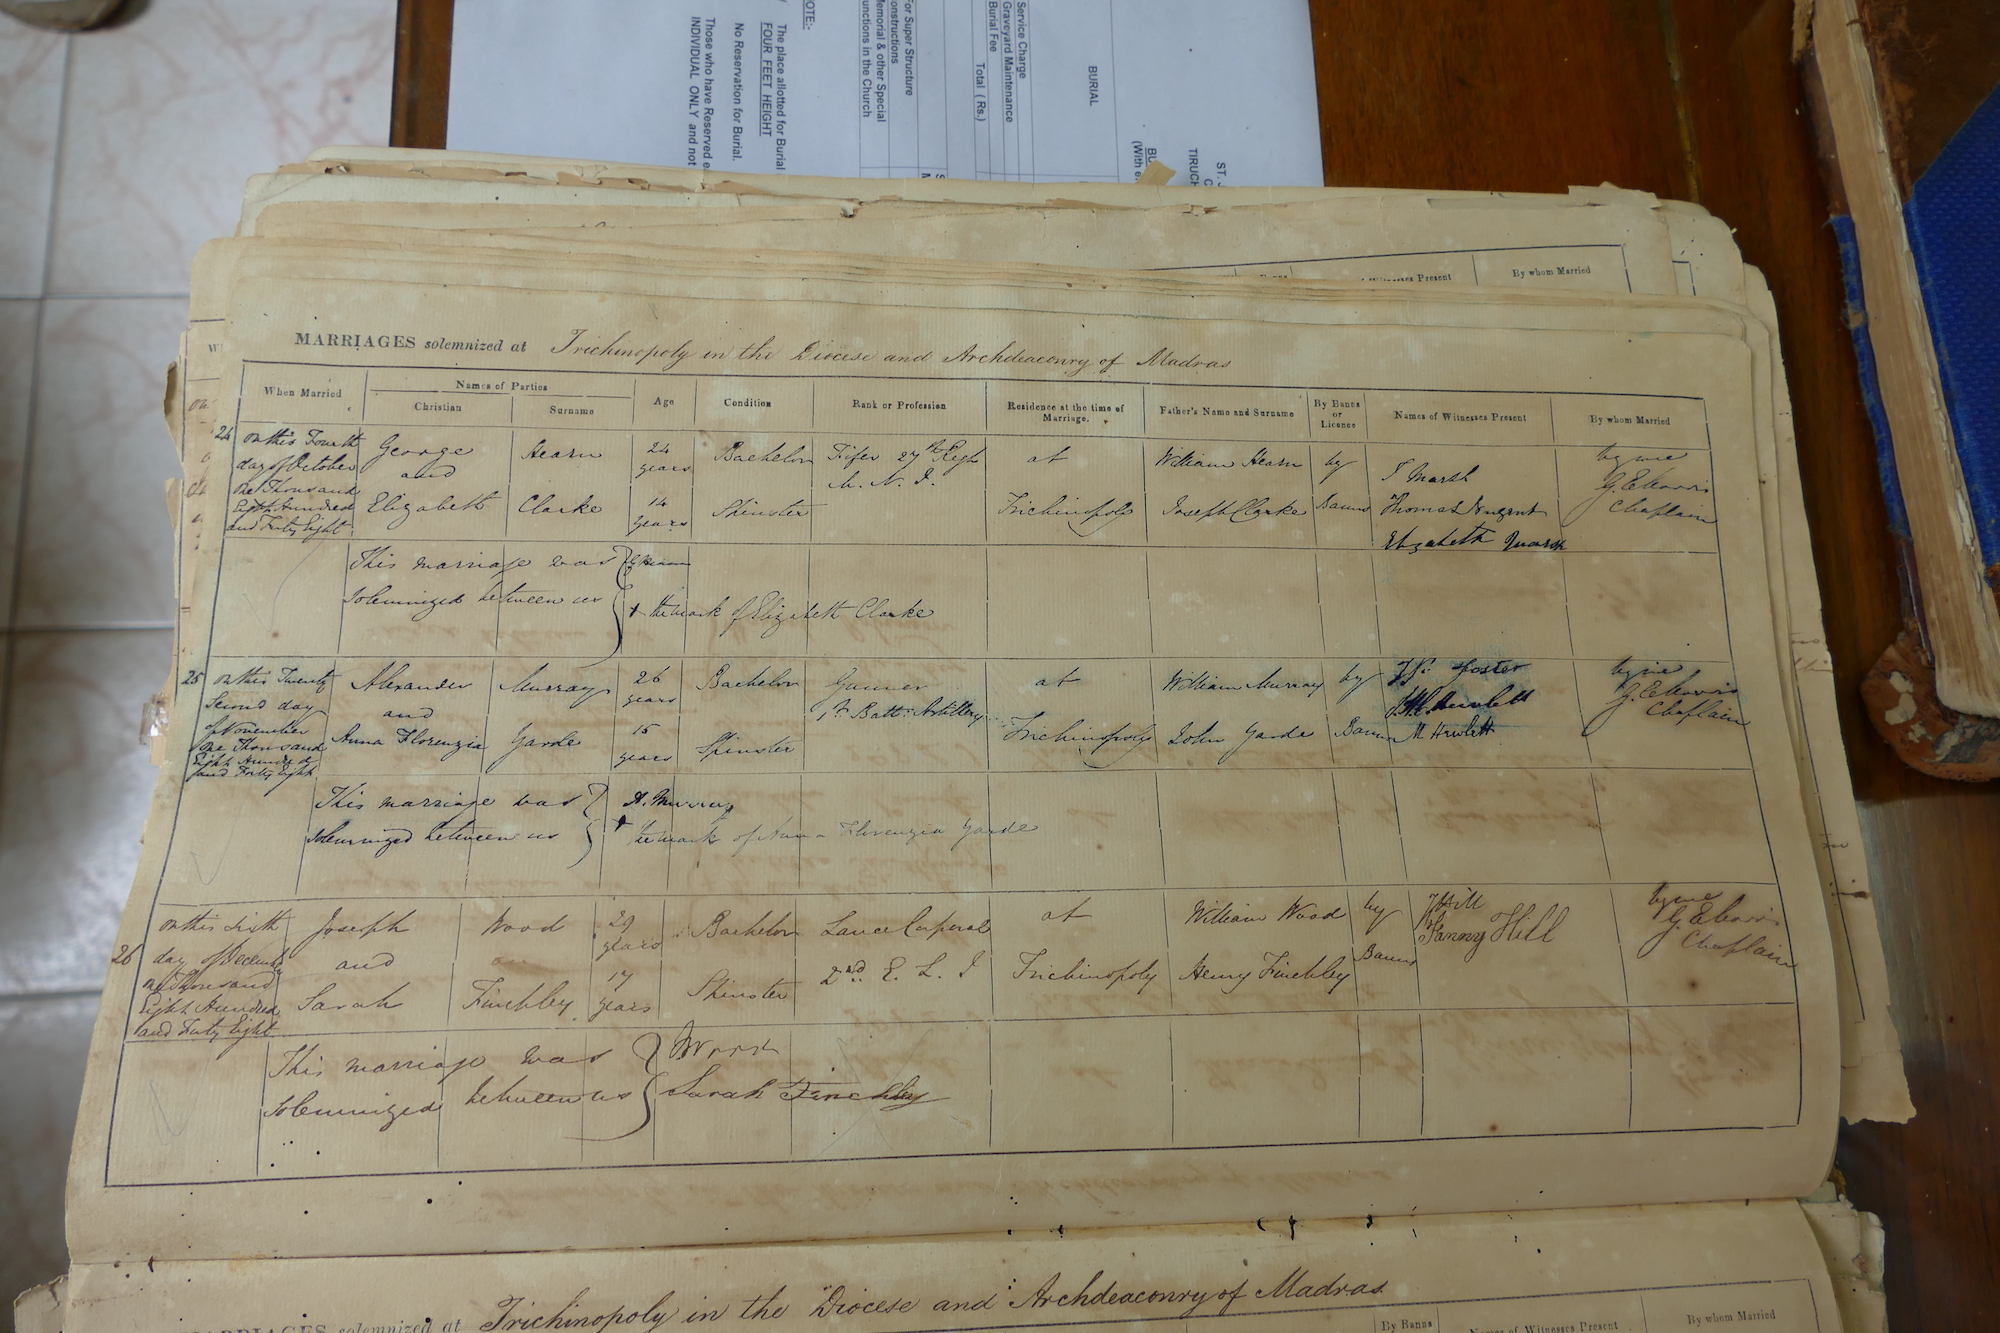 NOTE:-
The place allotted for Burial
FOUR FEET HEIGHT
No Reservation for Burial.
Those who have Reserved
INDIVIDUAL ONLY and not
For Super Structure
Constructions
Memorial & other Special
Functions in the Church
Service Charge
Graveyard Maintenance
Burial Fee Total ( Rs.)
BURIAL
ST.
TIRUCH
Witnesses Present By whom Married
MARRIAGES solemnized at Trichinopoly in the Diocese and Archdeaconry of Madras
When Married Names of Parties Age Condition Rank or Profession Residence at the time of Marriage. Father's Name and Surname By Banns or Licence Names of Witnesses Present By whom Married
Christian Surname
24 on this Fourth day of October one Thousand Eight Hundred and Forty Eight
George and Elizabeth
Hearn Clarke
24 years 14 years
Bachelor Spinster
Fifer 27th Regt M. N. I.
at Trichinopoly
William Hearn Joseph Clarke
by Banns
J Marsh
Thomas Nugent
Elizabeth Marsh
by me
Chaplain
This marriage was
solemnized between us
G Hearn
+ the mark of Elizabeth Clarke
25 on this Twenty Second day of November one Thousand Eight Hundred and Forty Eight
Alexander and Anna Florenzia
Murray Garde
26 years 15 years
Bachelor Spinster
Gunner 1st Batt: Artillery
at Trichinopoly
William Murray John Garde
by Banns
Foster
Hewlett
M Hewlett
by me
Chaplain
This marriage was
solemnized between us
A. Murray
+ the mark of Anna Florenzia Garde
26 on this Sixth day of December one Thousand Eight Hundred and Forty Eight
Joseph and Sarah
Wood Finchley
29 years 17 years
Bachelor Spinster
Lance Corporal 2nd E. L. I
at Trichinopoly
William Wood Henry Finchley
by Banns
Hill
Fanny Hill
by me
Chaplain
This marriage was
solemnized between us
Wood
Sarah Finchley
MARRIAGES solemnized at Trichinopoly in the Diocese and Archdeaconry of Madras
By Banns Names of Witnesses Present By whom Married